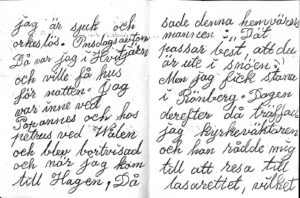 jag är sjuk och
orkeslös. Onsdagsafton
Då var jag i
och ville få hus
för natten. Jag
var inne ved
och hos
petrus ved Kilen
och blev bortvisad
och når jag kom
till Hagen, Då
sade denna hemvärns
mannen: ,,Dät
passar best, att du
är ute i snöen."
Men jag fick stanna
i Rönberg. Dagen
derefter då träffade
jag kyrkeväktaren
och han rådde mig
till att resa till
lasarettet, vilket